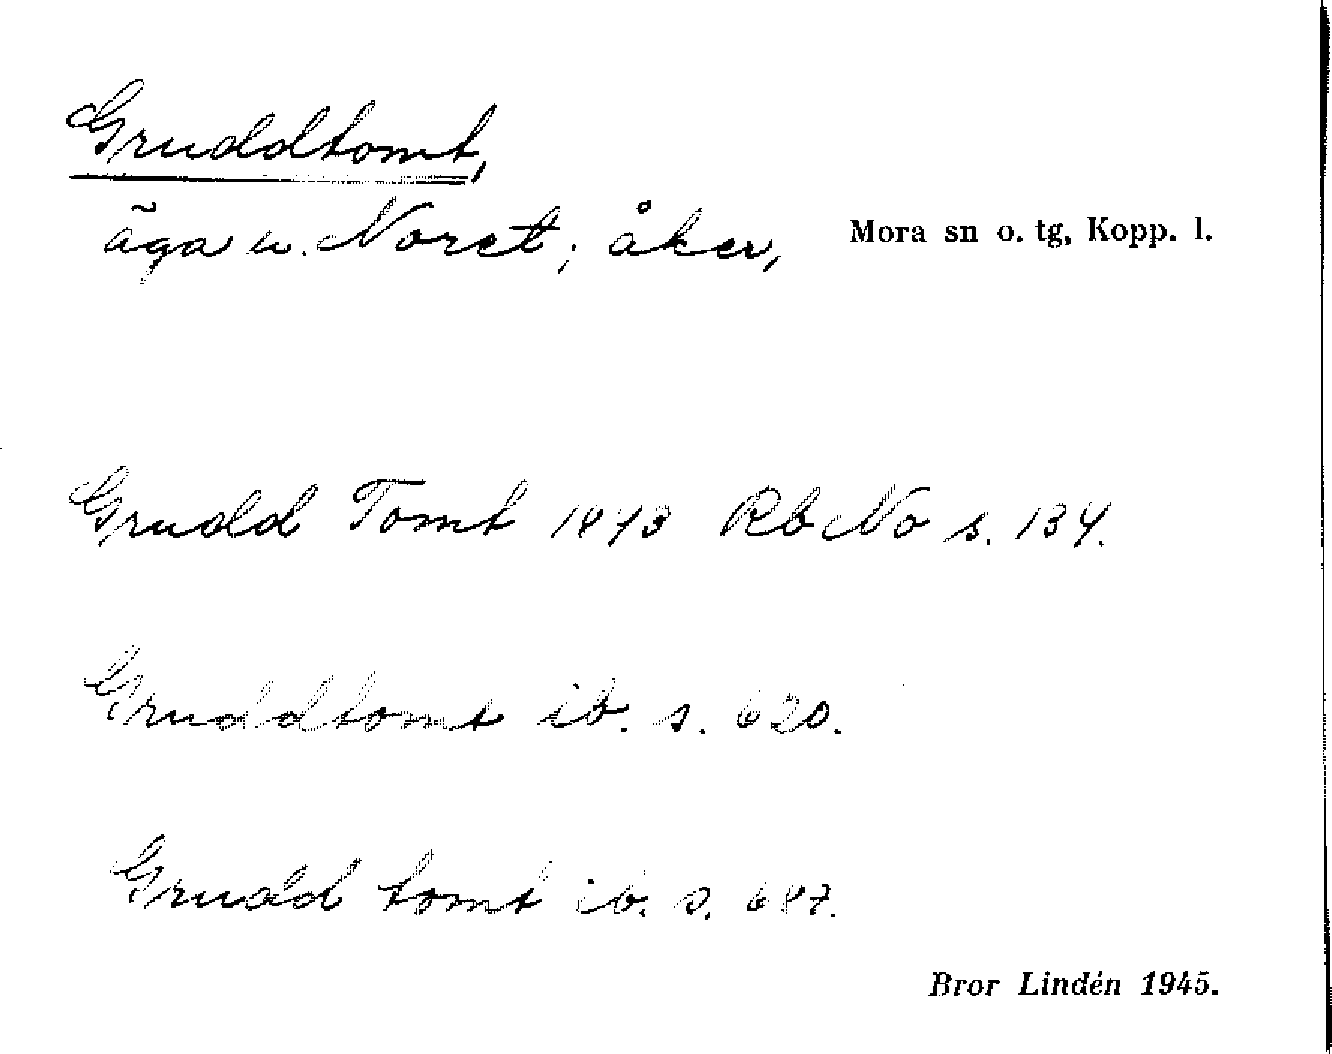 Gruddtomt,
äga u. Noret; åker, Mora sn o. tg, Kopp. l.
Grudd Tomt 1843 Rb No s. 134.
Gruddtomt ib. s. 620.
Grudd tomt ib. s. 687.
Bror Lindén 1945.